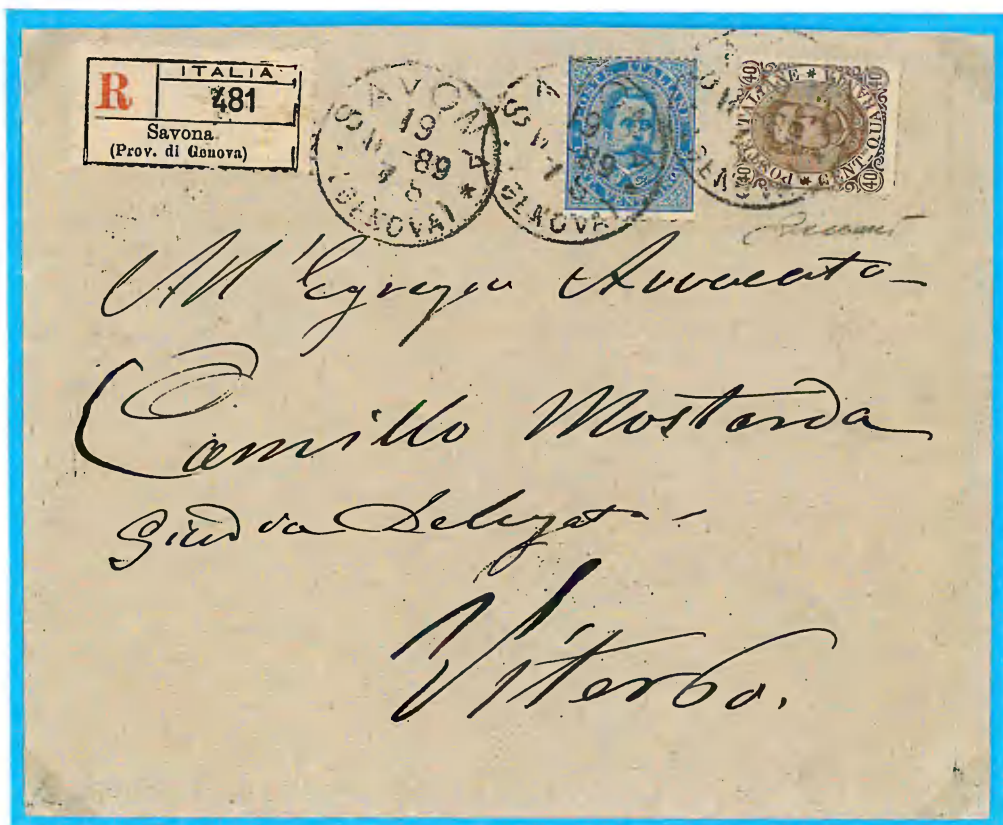 R
ITALIA
481
Savona
(Prov. di Genova)
SAVONA
19
-89
7 S
* (GENOVA)
POSTE ITALIANE
(GENOVA)
POSTE ITALIANE * CENT. QUARANTA *
40 40 40 40
All'egregio Avvocato
Camillo Mostarda
Giudice Delegato
Viterbo.